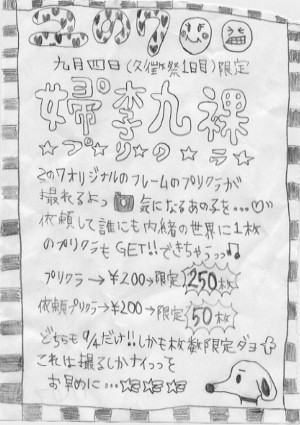 2の7
九月四日(久徴祭1日目)限定
婦李九裸
☆プ☆リ☆の☆ラ☆
2の7オリジナルのフレームのプリクラが
撮れるよっ 気になるあの子を…♡
依頼して誰にも内緒の世界に1枚
のプリクラもGET!!できちゃうっっ♫
プリクラ→¥200→限定250枚
依頼プリクラ→¥200→限定50枚
どちらも9/4だけ!!しかも枚数限定ダヨ
これは撮るしかナイっっを
お早めに…☆☆☆